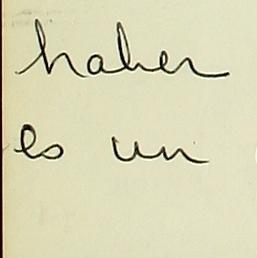 haber
es un